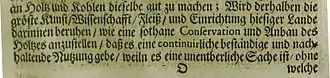 an Holtz und Kohlen dieselbe gut zu machen; Wird derhalben die
gröste Kunst/Wissenschafft/Fleiß/ und Einrichtung hiesiger Lande
darinnen beruhen / wie eine sothane Conservation und Anbau des
Holtzes anzustellen / daß es eine continuirliche beständige und nach-
haltende Nutzung gebe / weiln es eine unentberliche Sache ist / ohne
O welche